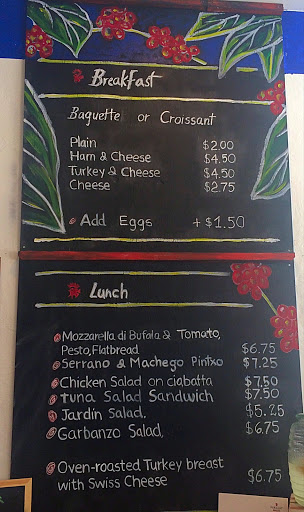 Breakfast
Baguette or Croissant
Plain $2.00
Ham & Cheese $4.50
Turkey & Cheese $4.50
Cheese $2.75
Add Eggs +$1.50
Lunch
Mozzarella di Bufala & Tomato,
Pesto,Flatbread $6.75
Serrano & Machego Pintxo $7.25
Chicken Salad on ciabatta $7.50
Tuna Salad Sandwich $7.50
Jardín Salad, $5.25
Garbanzo Salad, $6.75
Oven-roasted Turkey breast
with Swiss Cheese $6.75